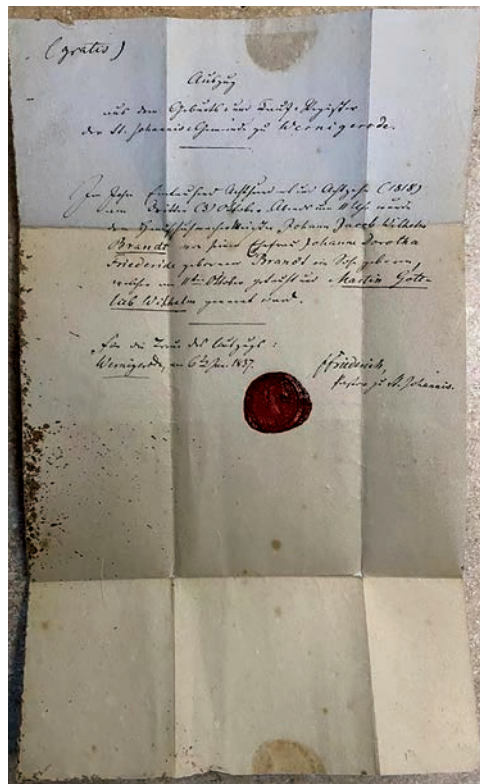 (gratis)
Auszug
aus dem Geburts- und Tauf-Register
der St. Johannis-Gemeinde zu Wernigerode.
Im Jahre Eintausend Achthundert und Achtzehn (1818)
am dritten (3) Oktober Abends um 11 Uhr wurde
dem Johann Jacob Wilhelm
Brandt von seiner Ehefrau Johanne Dorothea
Friederike geborenen Brandt ein Sohn geboren,
welcher am 11ten Oktober getauft und Martin Gott-
lieb Wilhelm genannt ward.
Für die Treue des Auszugs:
Wernigerode, den 6ten Jan. 1837.
Friederich,
Pastor zu St. Johannis.